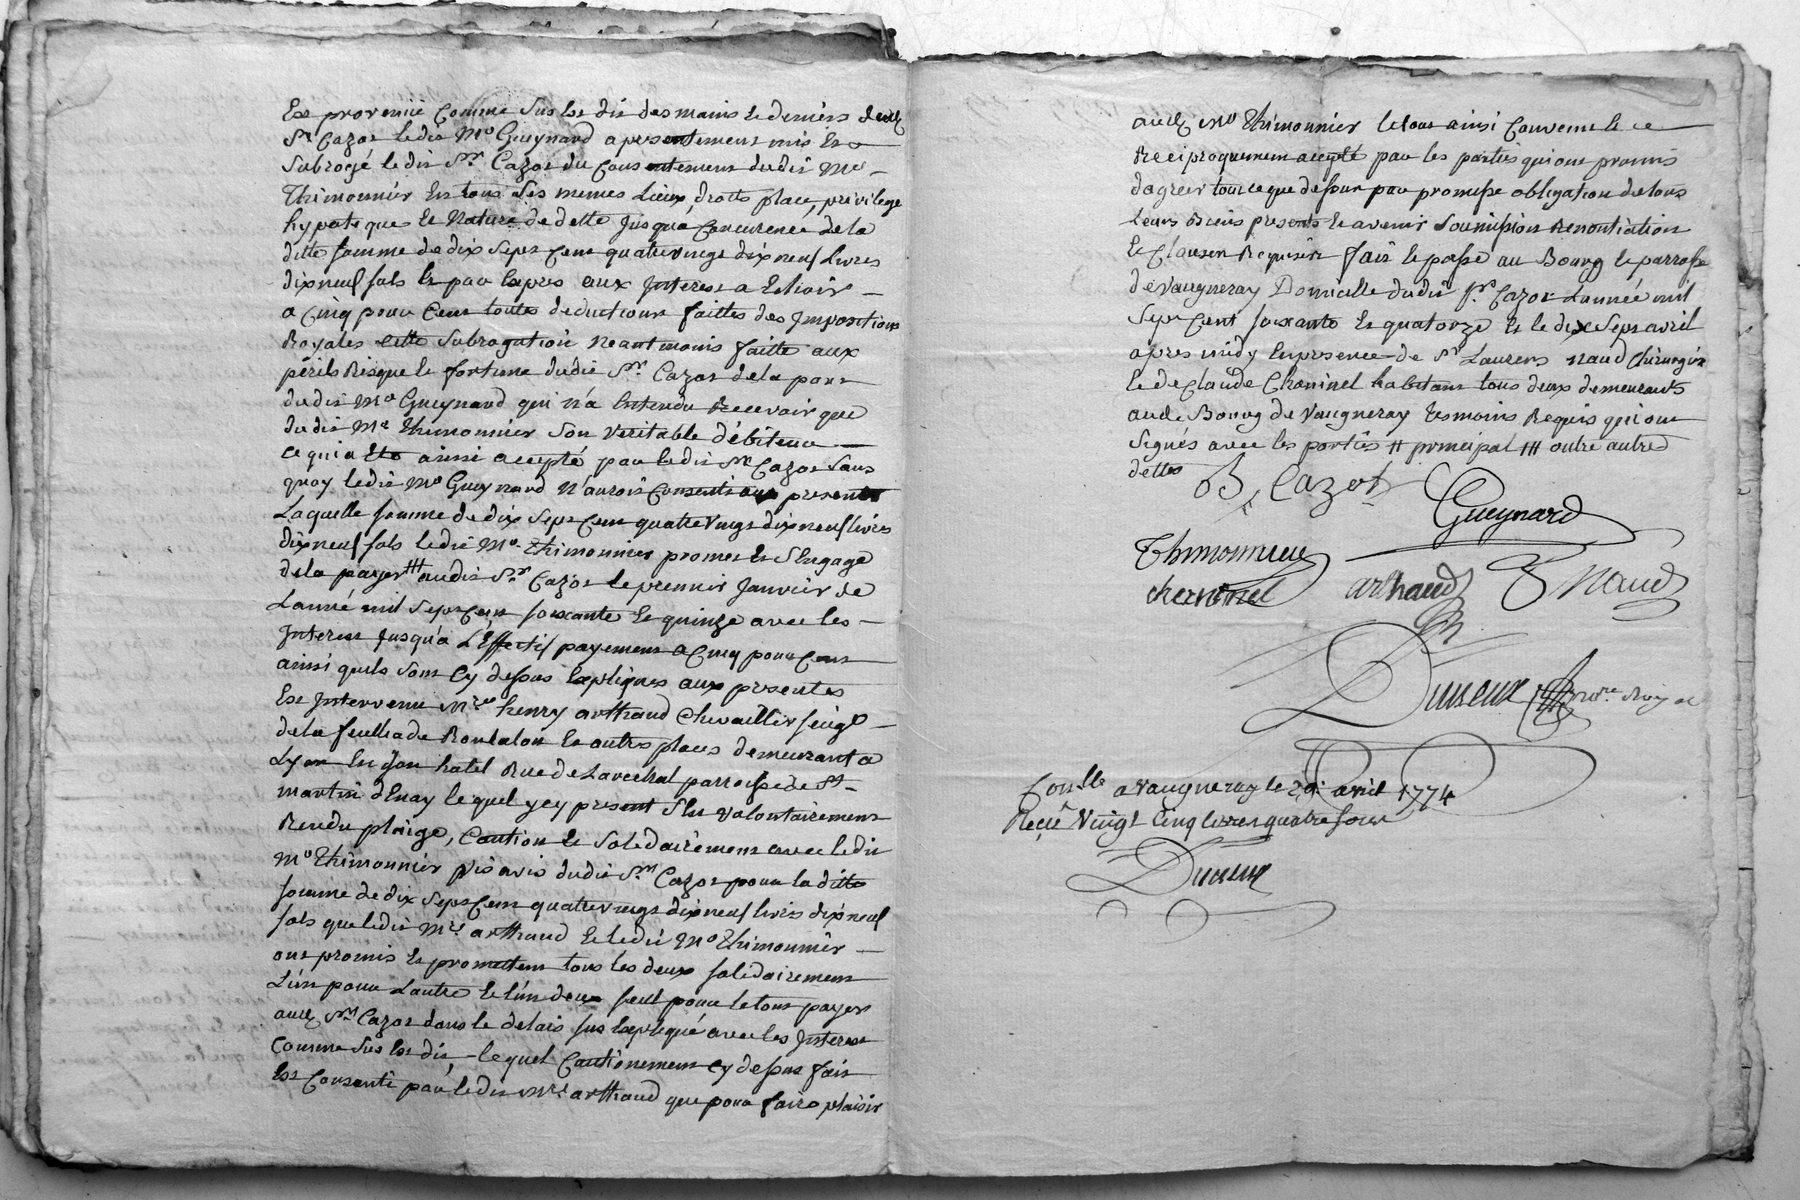 Est provenüe comme sus est dit des mains et deniers dudt
Sr Cazot ledit Me Gueynard a presentement mis et
Subrogé ledit Sr Cazot du consentement dudit Me
Thimonnier En tous ses memes Lieux, droits place, privilege
hypoteque et Nature de dette jusqua concurence de la
ditte somme de dix sept cent quatrevingt dix neuf Livres
dix neuf sols et par Exprès aux Interest a Echoir
a cinq pour cent touttes deductions faittes des Impositions
Royales cette subrogation neantmoins faitte aux
périls Risque et fortune dudit Sr Cazot de la part
dudit Me Gueynard qui n'a Entendu Recevoir que
dudit Me Thimonnier son veritable débiteur
ce qui a Eté ainsi accepté par ledit Sr Cazot sans
quoy ledit Me Gueynard n'auroit consenti aux presentes
Laquelle somme de dix sept cent quatrevingt dix neuf livres
dix neuf sols ledit Me Thimonnier promet et s'Engage
de la payer ⧻ audit Sr Cazot le premier Janvier de
L'année mil sept cent soixante et quinze avec les
Interest jusqu'à L'Effectif payement a cinq pour cent
ainsi quils sont cy dessus Expliqués aux presentes
Est Intervenu Mre henry arthaud chevaillier seigr
de la feuillade Rontalon et autres places demeurant a
Lyon En son hotel Rue de parroisse de St
martin d'Enay lequel y cy present s'Est volontairement
Rendu plaige, caution et solidairement avec ledit
Me Thimonnier vis avis dudit Sr Cazot pour la ditte
somme de dix sept cent quatrevingt dix neuf livres dix neuf
sols que ledit Mre arthaud et ledit Me Thimonnier
ont promis et promettent tous les deux solidairement
L'un pour L'autre et l'un deux seul pour le tout payer
audt Sr Cazot dans le delais sus Expliqué avec les Interest
comme sus est dit, lequel cautionement cy dessus fait
Est consenti par ledit Mre arthaud que pour faire plaisir
audt Me Thimonnier le tout ainsi convenu et
Reciproquement accepté par les parties qui ont promis
d'agréer tout ce que dessus par promesse obligation de tous
Leurs Biens presents et avenir soumission Renontiation
et clauses Requises fait et passé au Bourg et parroisse
de Vaugneray Domicille dudit Sr Cazot L'année mil
sept cent soixante et quatorze et le dix sept avril
apres midy En presence de Sr Laurens naud chirurgien
et de Claude Cheminel habitant tous deux demeurants
audt Bourg de Vaugneray temoins Requis qui ont
signés avec les parties ⧺ principal ⧻ outre autre
dettes
B, Cazot
Gueynard
Thimonnier
cheminel
arthaud
naud
Duneuu nore Royal
Conllé a Vaugneray le avril 1774
Reçu vingt cinq livres quatre sous